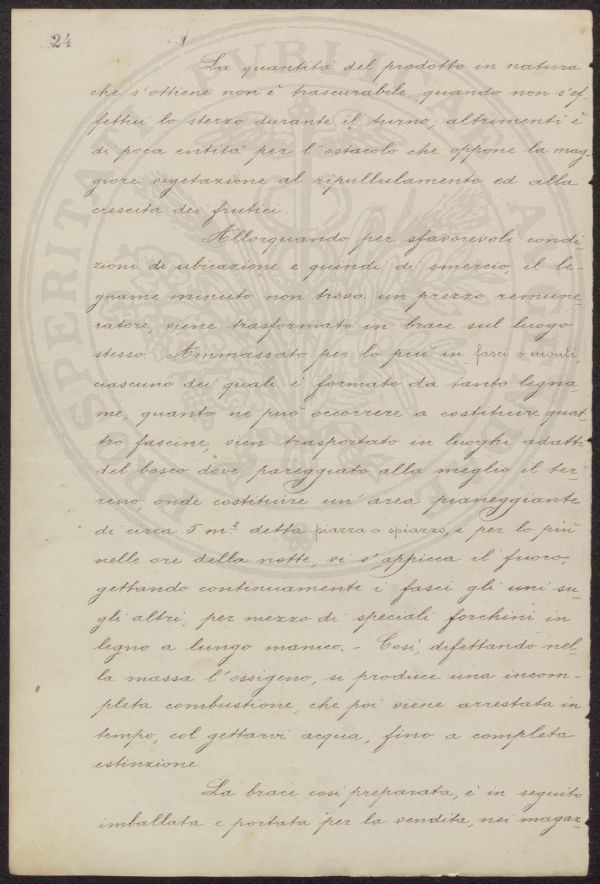 24
La quantità del prodotto in natura
che s'ottiene non è trascurabile, quando non s'ef-
fettui lo sterzo durante il turno; altrimenti è
di poca entità per l'ostacolo che oppone la mag-
giore vegetazione al ripullulamento ed alla
crescita dei frutici.
Allorquando per sfavorevoli condi-
zioni di ubicazione e quindi di smercio, il le-
gname minuto non trova un prezzo remune-
ratore, viene trasformato in brace sul luogo
stesso. Ammassato per lo più in fasci o
ciascuno dei quali è formato da tanto legna-
me, quanto ne può occorrere a costituire quat-
tro fascine, vien trasportato in luoghi adatti
del bosco dove, pareggiato alla meglio il ter-
reno, onde costituire un'area pianeggiante
di circa 5 m.² detta piazza o spiazzo, e per lo più
nelle ore della notte, vi s'appicca il fuoco,
gettando continuamente i fasci gli uni su-
gli altri, per mezzo di speciali forchini in
legno a lungo manico. - Così, difettando nel-
la massa l'ossigeno, si produce una incom-
pleta combustione, che poi viene arrestata in
tempo, col gettarvi acqua, fino a completa
estinzione.
La brace così preparata, è in seguito
imballata e portata per la vendita, nei magaz-
PROSPERITATI PUBLICAE AUGENDAE